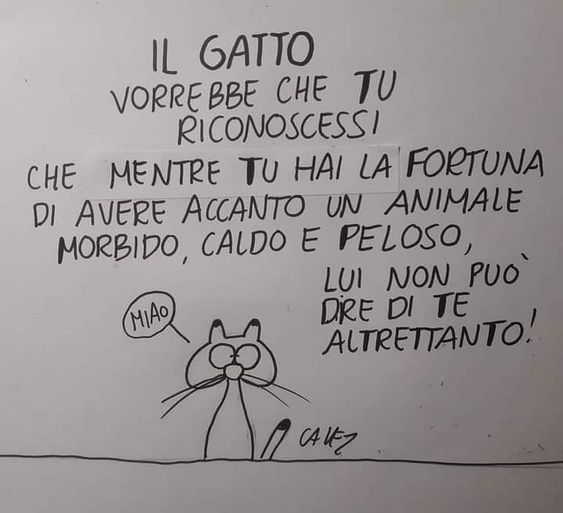 IL GATTO
VORREBBE CHE TU
RICONOSCESSI
CHE MENTRE TU HAI LA FORTUNA
DI AVERE ACCANTO UN ANIMALE
MORBIDO, CALDO E PELOSO,
LUI NON PUÒ
DIRE DI TE
ALTRETTANTO!
MIAO
CAVEZ